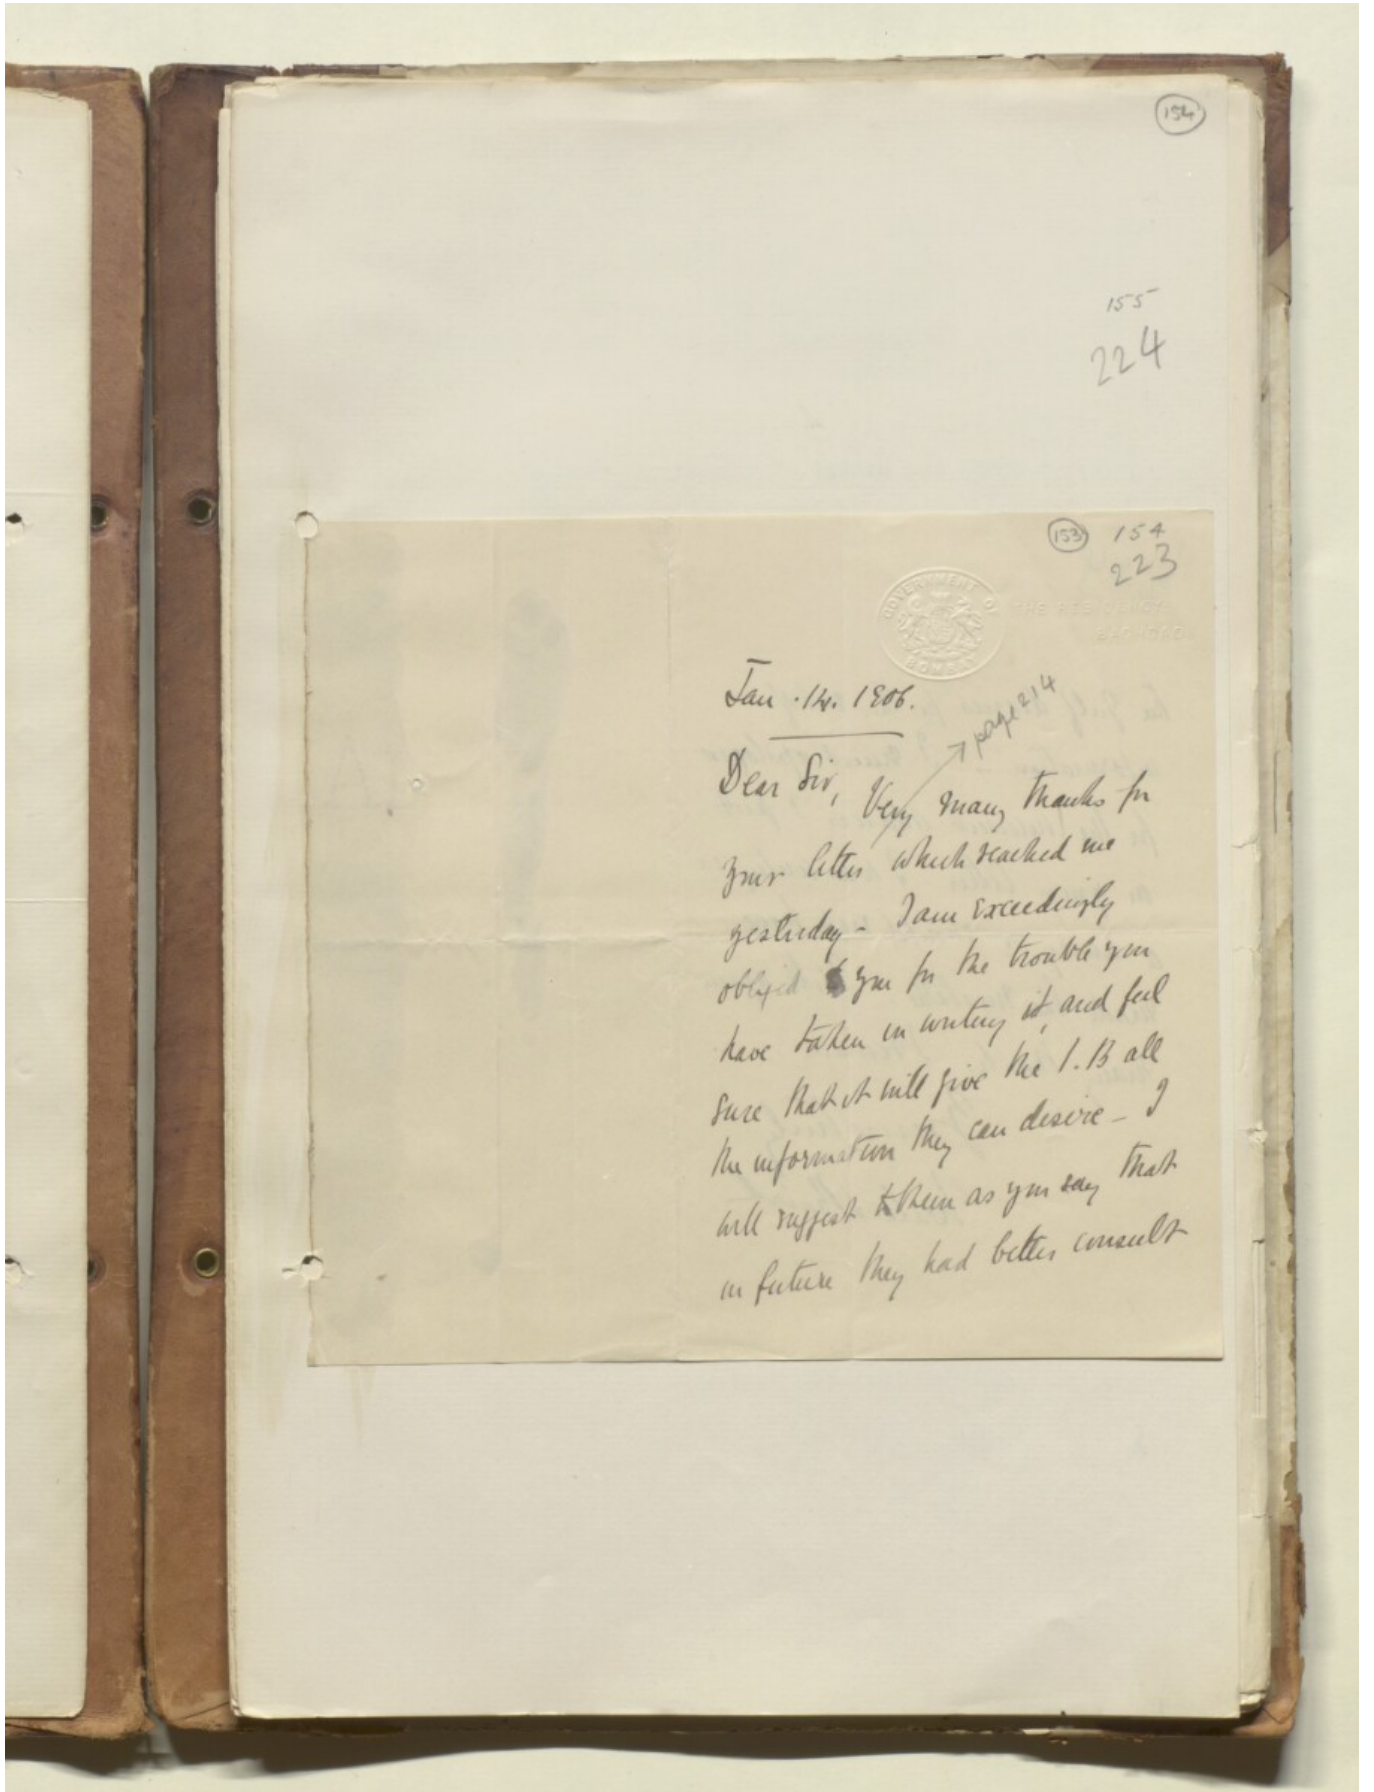 154
155
224
153 154
223
GOVERNMENT OF BOMBAY
THE RESIDENCY
BAGHDAD
Jan. 14. 1906.
page 214
Dear Sir, Very many thanks for
your letter which reached me
yesterday - I am exceedingly
obliged to you for the trouble you
have taken in writing it, and feel
sure that it will give the I.B all
the information they can desire - I
will suggest to them as you say that
in future they had better consult